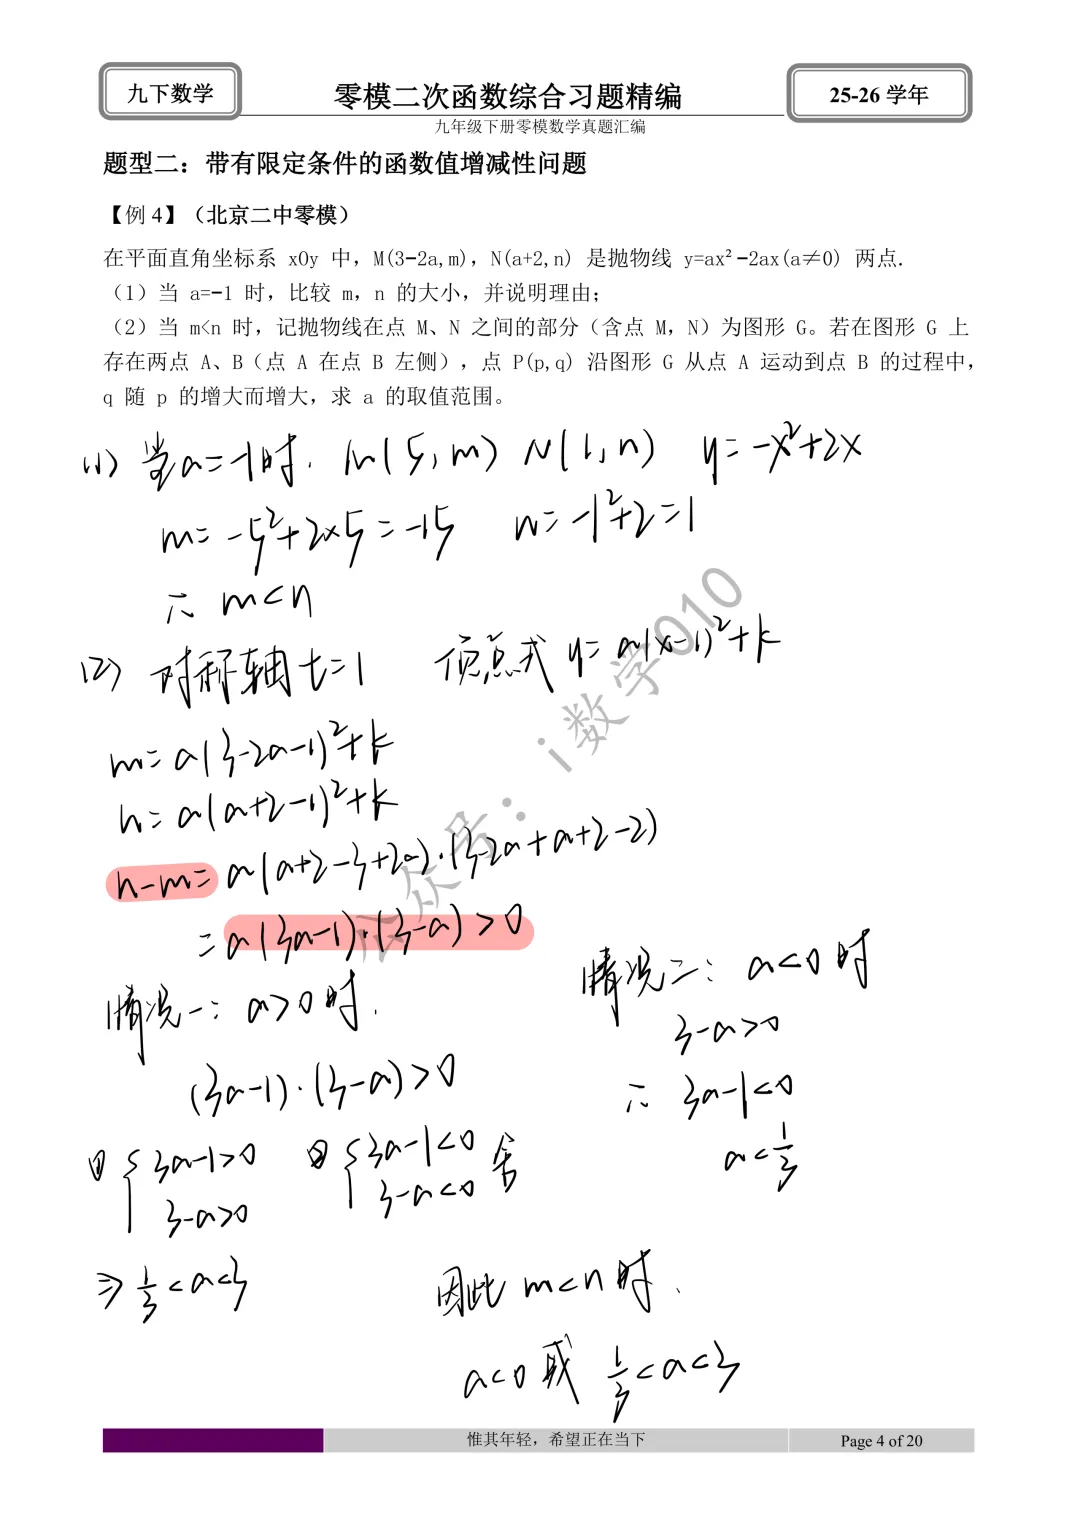 九下数学
零模二次函数综合习题精编
25-26 学年
九年级下册零模数学真题汇编
题型二：带有限定条件的函数值增减性问题
【例 4】（北京二中零模）
在平面直角坐标系 xOy 中，M(3-2a,m)，N(a+2,n) 是抛物线 y=ax²-2ax(a≠0) 两点.
（1）当 a=-1 时，比较 m，n 的大小，并说明理由；
（2）当 m<n 时，记抛物线在点 M、N 之间的部分（含点 M，N）为图形 G。若在图形 G 上
存在两点 A、B（点 A 在点 B 左侧），点 P(p,q) 沿图形 G 从点 A 运动到点 B 的过程中，
q 随 p 的增大而增大，求 a 的取值范围。
(1) 当a=-1时. M(5,m) N(1,n) y=-x²+2x
m=-5²+2×5=-15 n=-1²+2=1
∴ m<n
(2) 对称轴 t=1 顶点式 y=a(x-1)²+k
m=a(3-2a-1)²+k
n=a(a+2-1)²+k
n-m=a(a+2-3+2a)·(3-2a+a+2-2)
=a(3a-1)·(3-a)>0
情况一: a>0时.
(3a-1)·(3-a)>0
① { 3a-1>0 ② { 3a-1<0 舍
3-a>0 3-a<0
⇒ 1/3<a<3
情况二: a<0时
3-a>0
∴ 3a-1<0
a<1/3
因此 m<n时.
a<0或 1/3<a<3
公众号：i数学010
惟其年轻，希望正在当下
Page 4 of 20